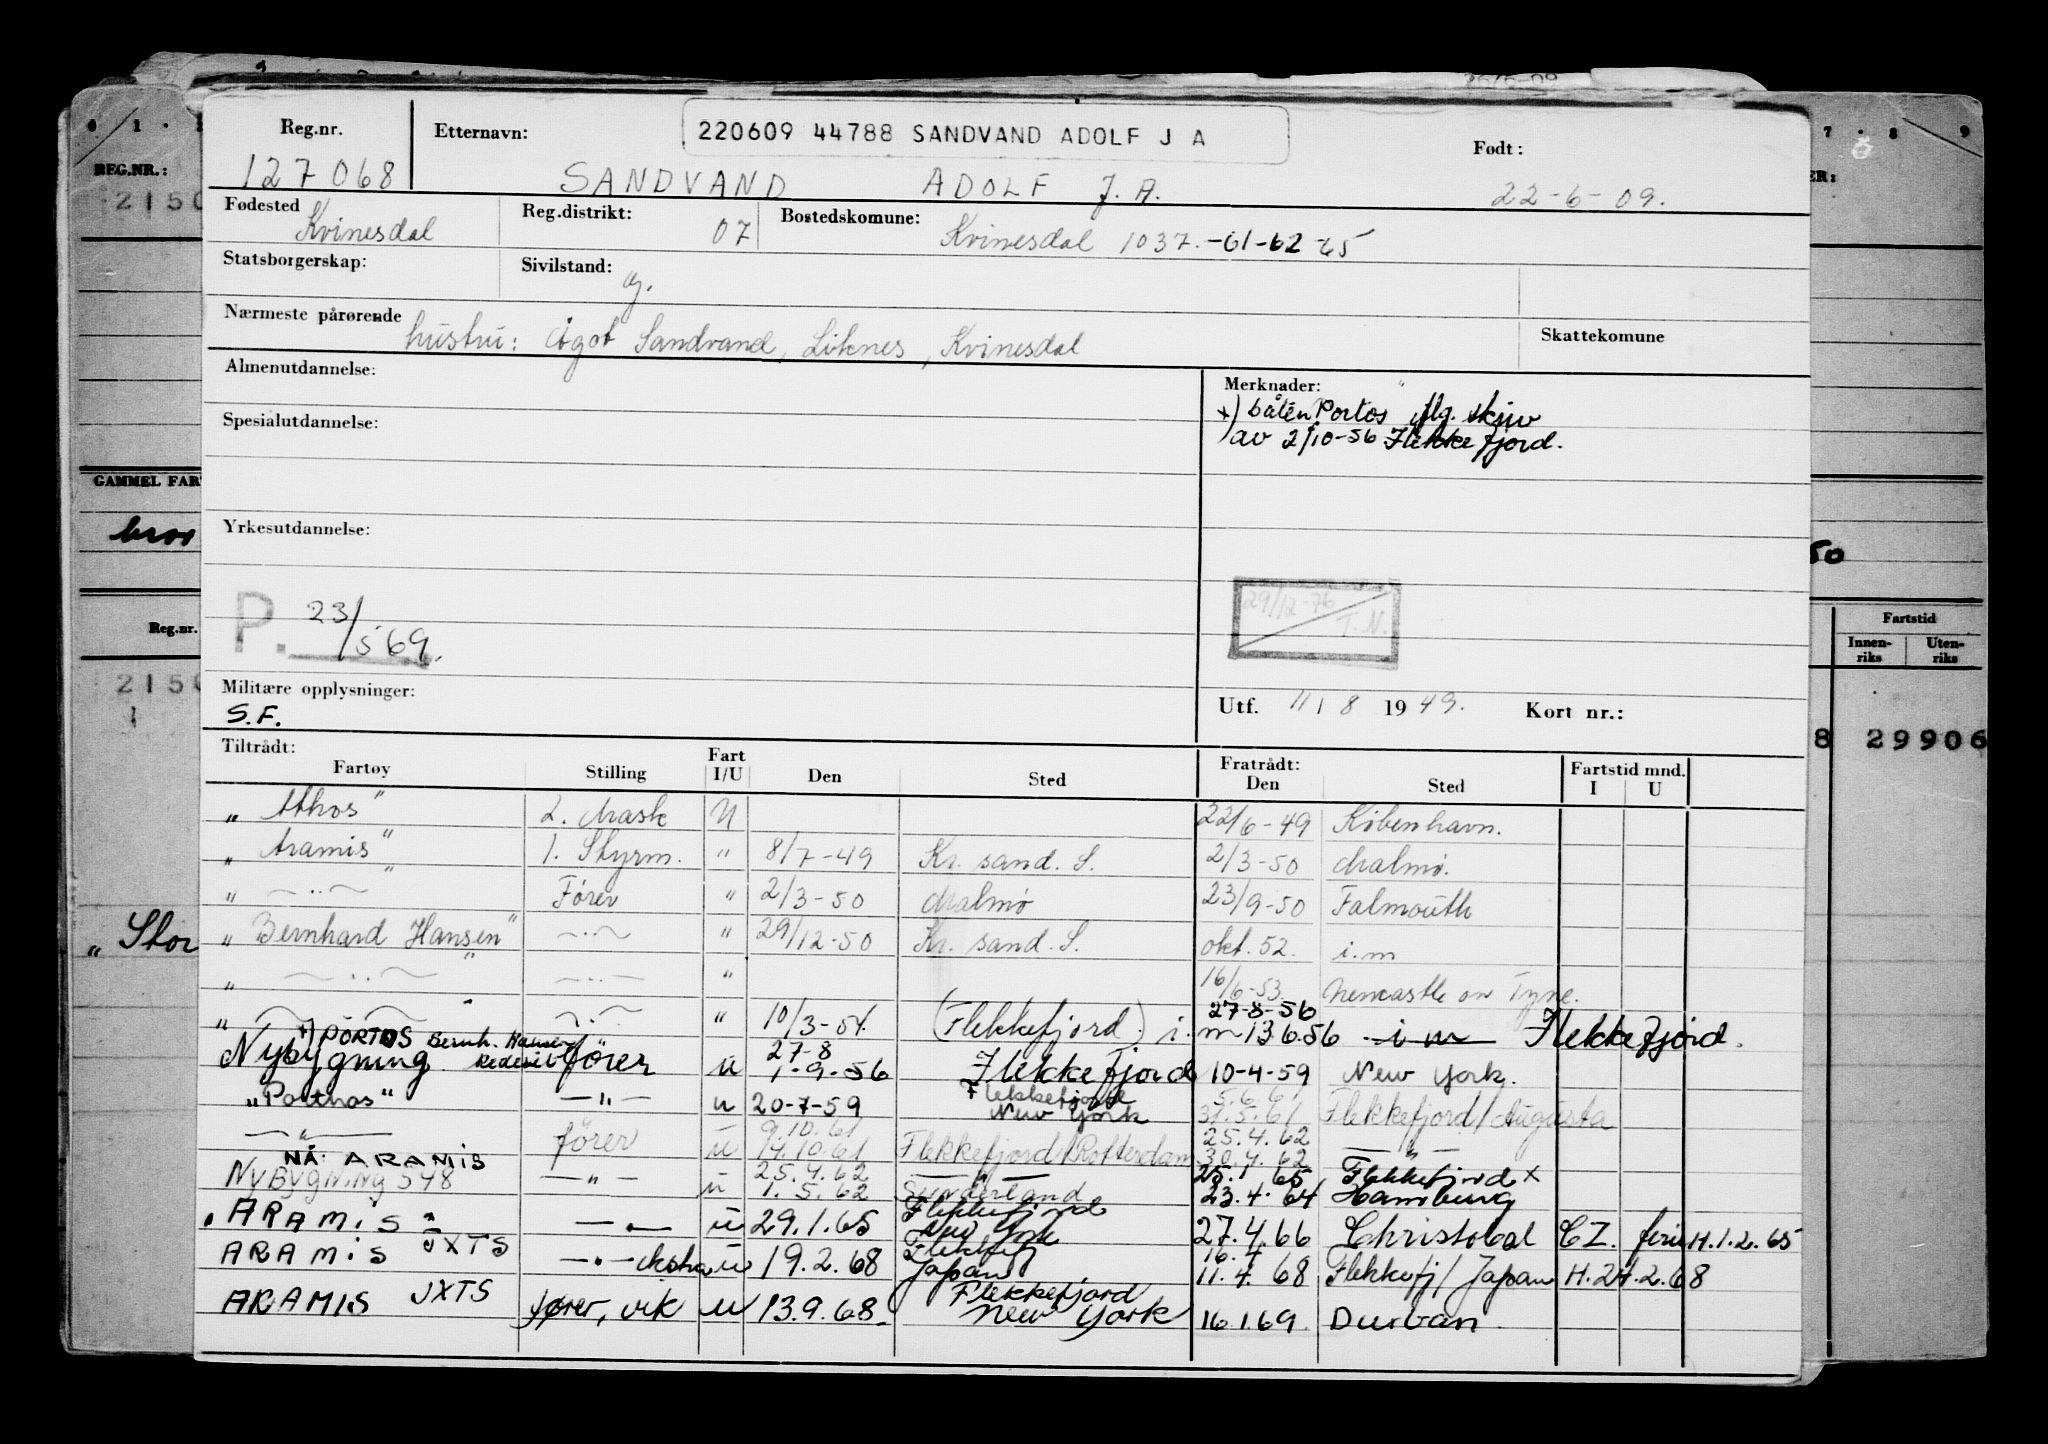 Reg.nr. Etternavn: 220609 44788 SANDVAND ADOLF J A Født:
127068 SANDVAND ADOLF J. A. 22-6-09.
Fødested Kvinesdal Reg.distrikt: 07 Bostedskomune: Kvinesdal 1037.-61-62-65
Statsborgerskap: Sivilstand: g.
Nærmeste pårørende hustru: Ågot Sandvand, Liknes, Kvinesdal Skattekomune
Almenutdannelse: Merknader:
x) båten Portos flg. skriv
av 2/10-56 Flekkefjord.
Spesialutdannelse:
Yrkesutdannelse:
P. 23/5 69.
29/12-76
T.N.
Militære opplysninger: Utf. 11/8 1949. Kort nr.:
S.F.
Tiltrådt: Fratrådt: Fartstid mnd.
Fartøy Stilling Fart I/U Den Sted Den Sted I U
"Athos" 2. Mask U 22/6-49 København.
"Aramis" 1. Styrm. " 8/7-49 Kr. sand. S. 2/3-50 Malmø.
" — " — Fører " 2/3-50 Malmø 23/9-50 Falmouth
"Bernhard Hansen" — " — " 29/12-50 Kr. sand. S. okt. 52. i.m
" — " — — " — " 16/6-53. Newcastle on Tyne.
" — " — — " — " 10/3-54. (Flekkefjord) i. m 13.6.56 27-8-56 i m Flekkefjord.
x) PORTOS Bernh. Hansen Rederi
Nybygning fører u 27-8 1-9-56 Flekkefjord 10-4-59 New York.
"Porthos" — " — u 20-7-59 Flekkefjord New York 5.6.61 31.5.61 Flekkefjord/Augusta
— " — fører u 9.10.61 14.10.61 Flekkefjord/Rotterdam 25.4.62 30.4.62 — " —
NÅ: ARAMIS
NYBYGNING 548 — " — u 25.4.62 1.5.62 — " — Sunderland 25.1.65 23.4.64 Flekkefjord x Hamburg
"ARAMIS" — " — u 29.1.65 Flekkefjord New York 27.4.66 Christobal CZ. ferie H.1.2.65
ARAMIS JXTS — " — ekstra u 19.2.68 Flekkefj Japan 16.4 11.4.68 Flekkefj/Japan H.24.2.68
ARAMIS JXTS fører, vik u 13.9.68 Flekkefjord New York 16.1.69. Durban.
REG.NR.:
2150
GAMMEL FAR
Reg.nr.
2150
"Stor
7 . 8 9
ER:
50
Fartstid
Innen-riks Uten-riks
8 29906